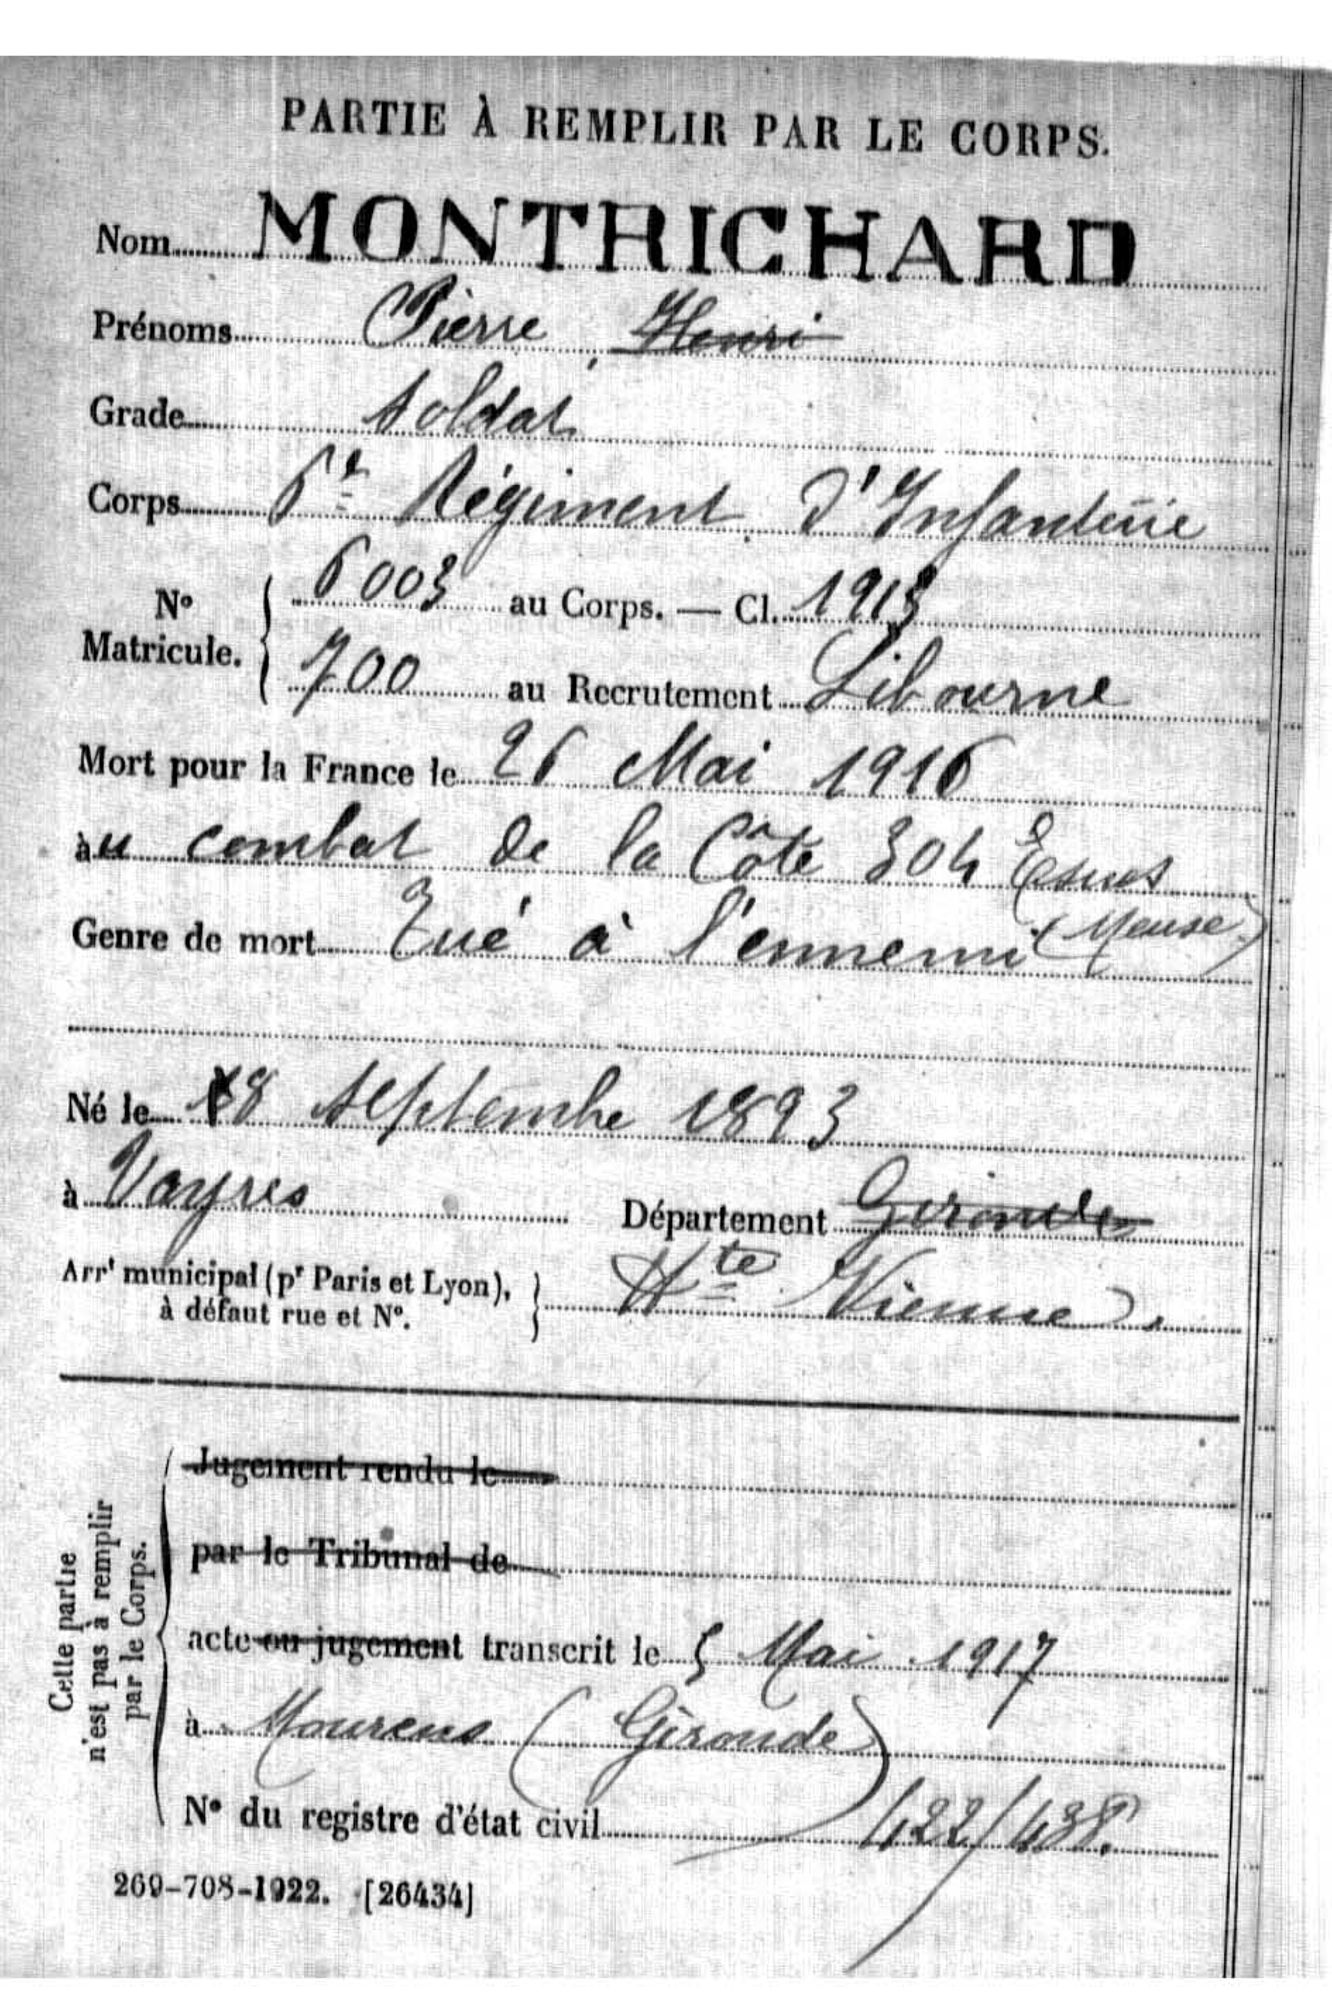 PARTIE À REMPLIR PAR LE CORPS.
Nom MONTRICHARD
Prénoms Pierre, Henri
Grade Soldat
Corps 6e Régiment d'Infanterie
No Matricule. 6003 au Corps. — Cl. 1913
700 au Recrutement Libourne
Mort pour la France le 26 Mai 1916
àu combat de la Côte 304 Esnes
(Meuse)
Genre de mort Tué à l'ennemi
Né le 18 septembre 1893
à Vayres Département Gironde
Arrt municipal (pr Paris et Lyon), Hte Vienne
à défaut rue et No.
Cette partie
n'est pas à remplir
par le Corps.
Jugement rendu le
par le Tribunal de
acte ou jugement transcrit le 5 Mai 1917
à Mourens (Gironde)
No du registre d'état civil 422/438.
269-708-1922. [26434]